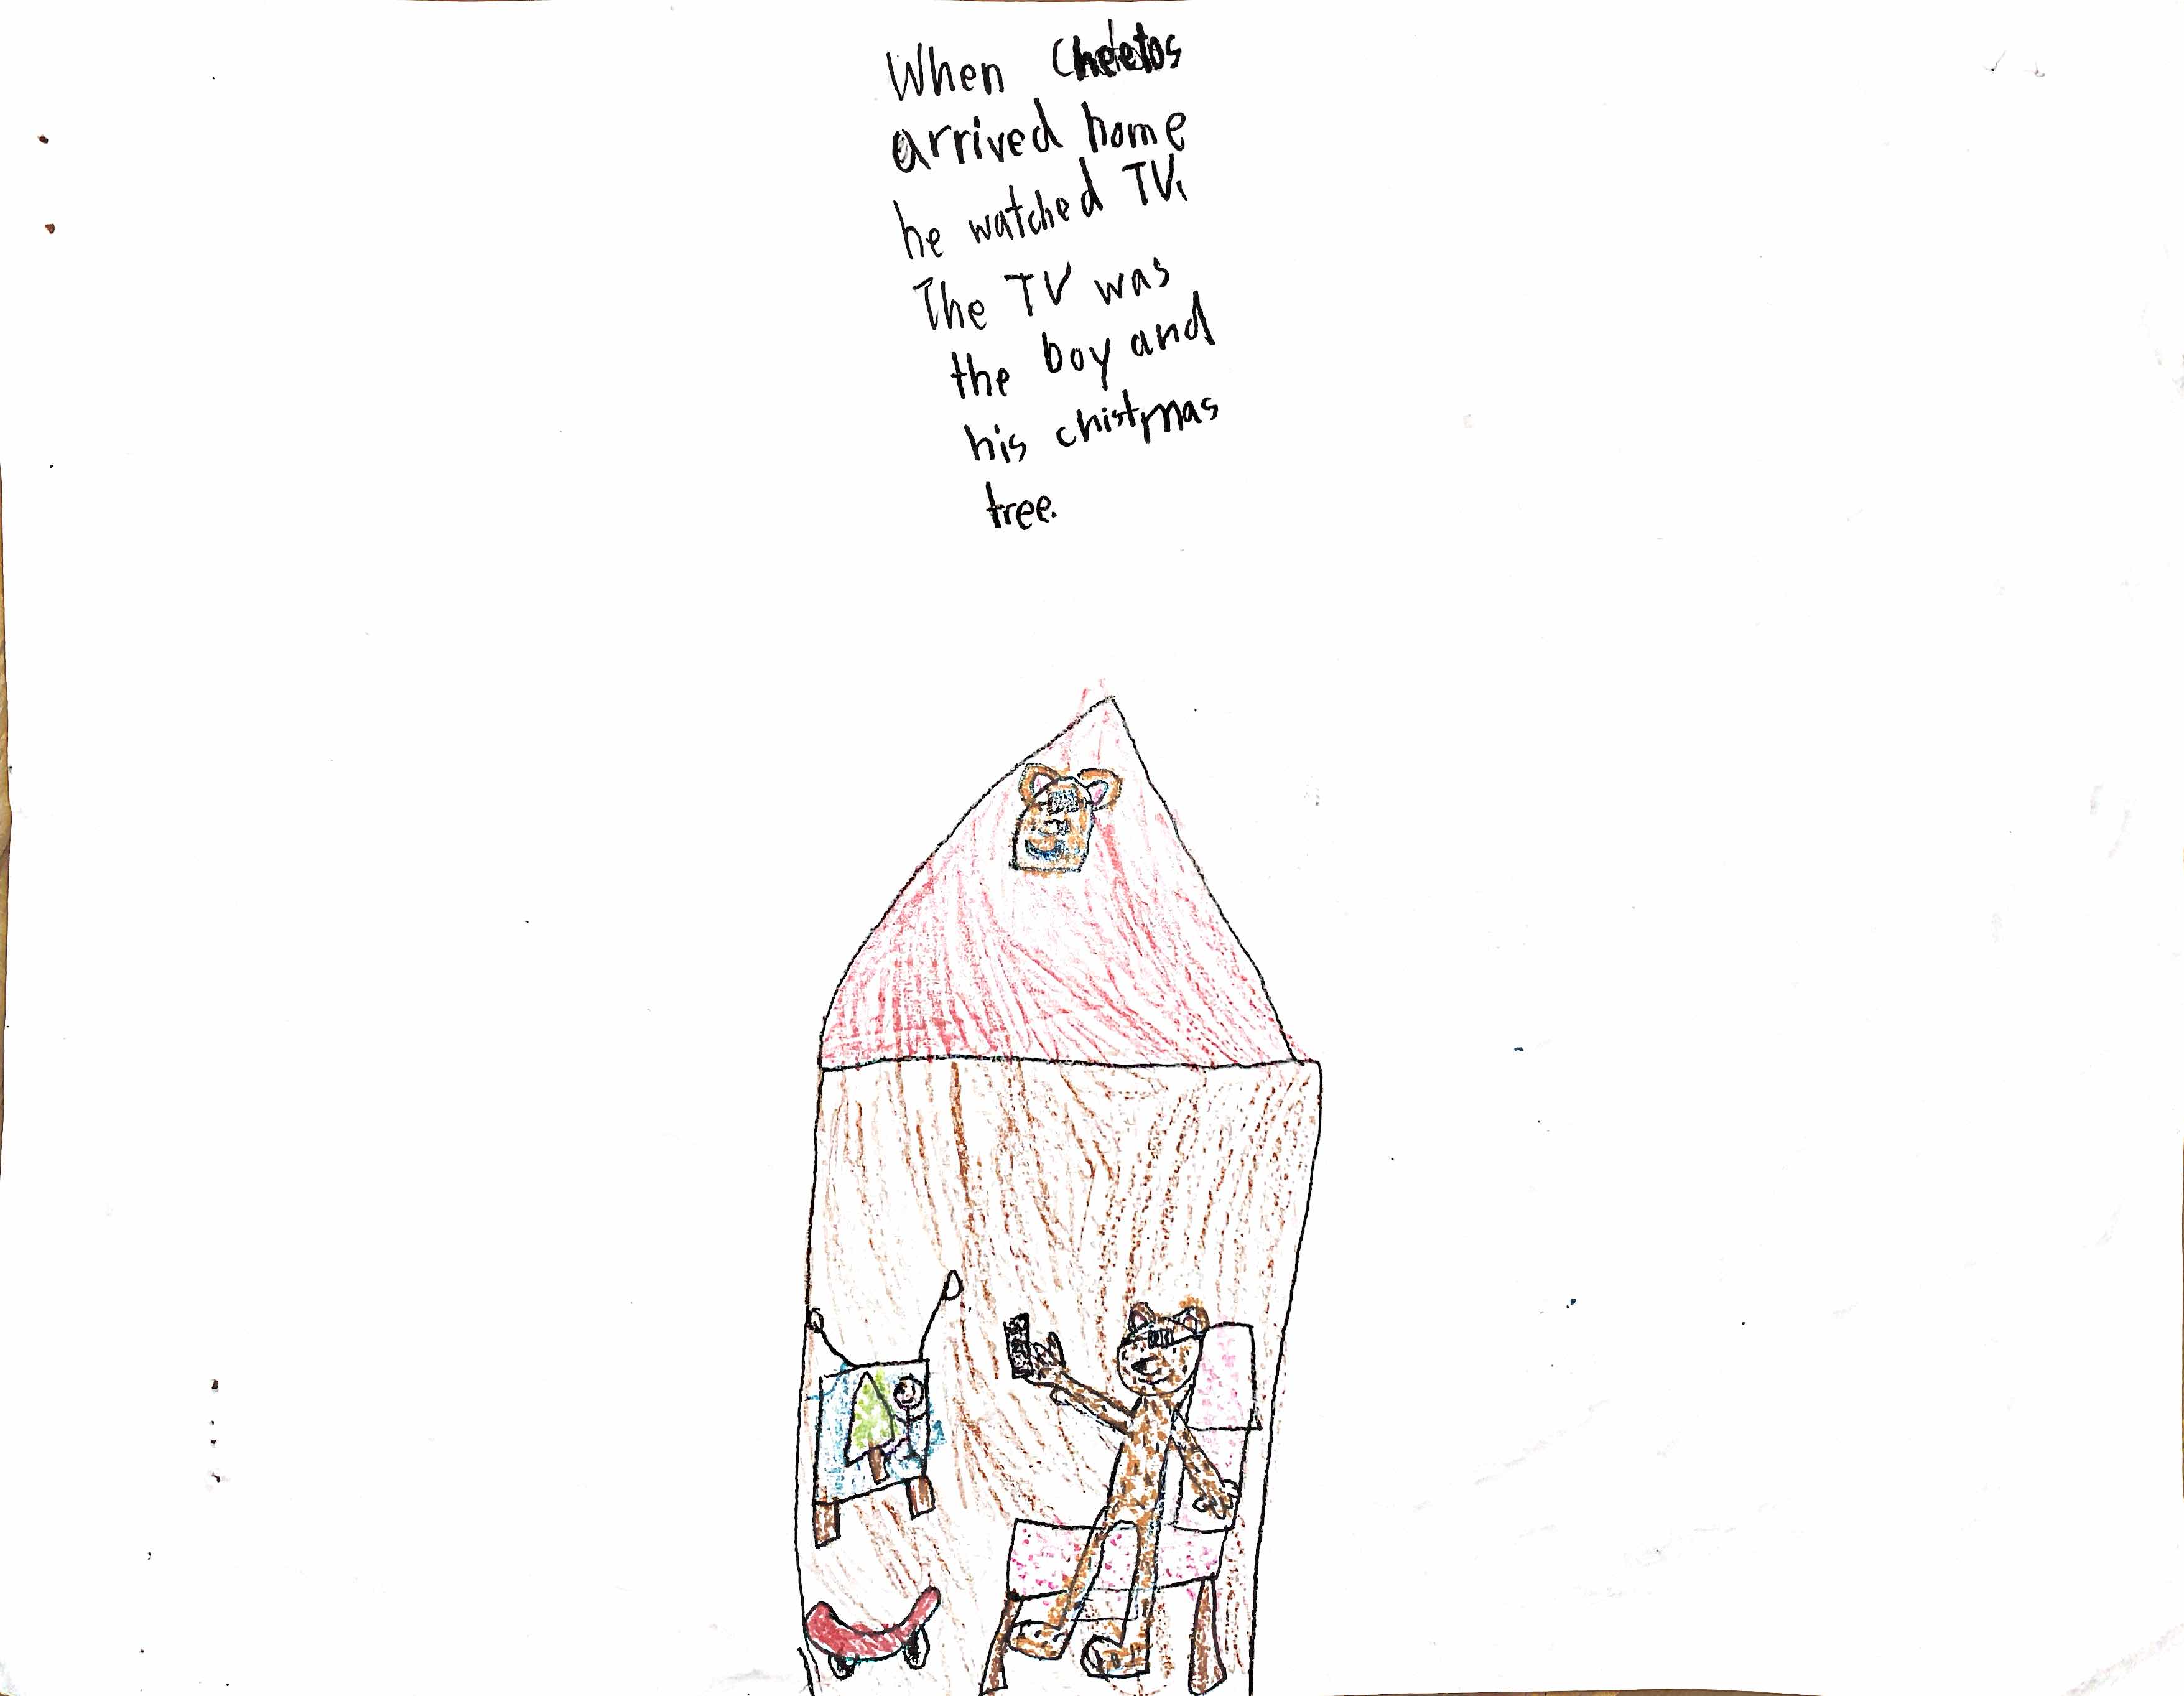 When Cheetos
arrived home
he watched TV.
The TV was
the boy and
his chistmas
tree.